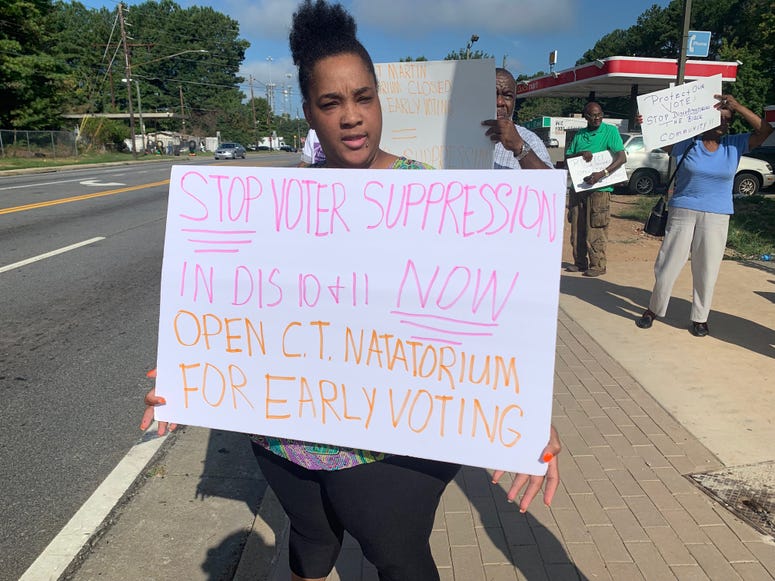 STOP VOTER SUPPRESSION
IN DIS 10 & 11 NOW
OPEN C.T. NATATORIUM
FOR EARLY VOTING
MARTIN
CLOSED
EARLY VOTING
PROTECT OUR
VOTE!
STOP
THE BLACK
COMMUNITY!!